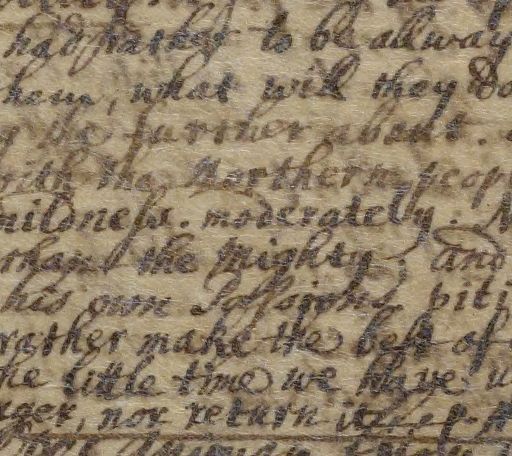 had rather to be allway
hem, what will they do
the further about.
with the Northern peop
mildness. moderately.
than the mighty, and
his own Passions, piti
rather make the best of
he little time we have
nor return it